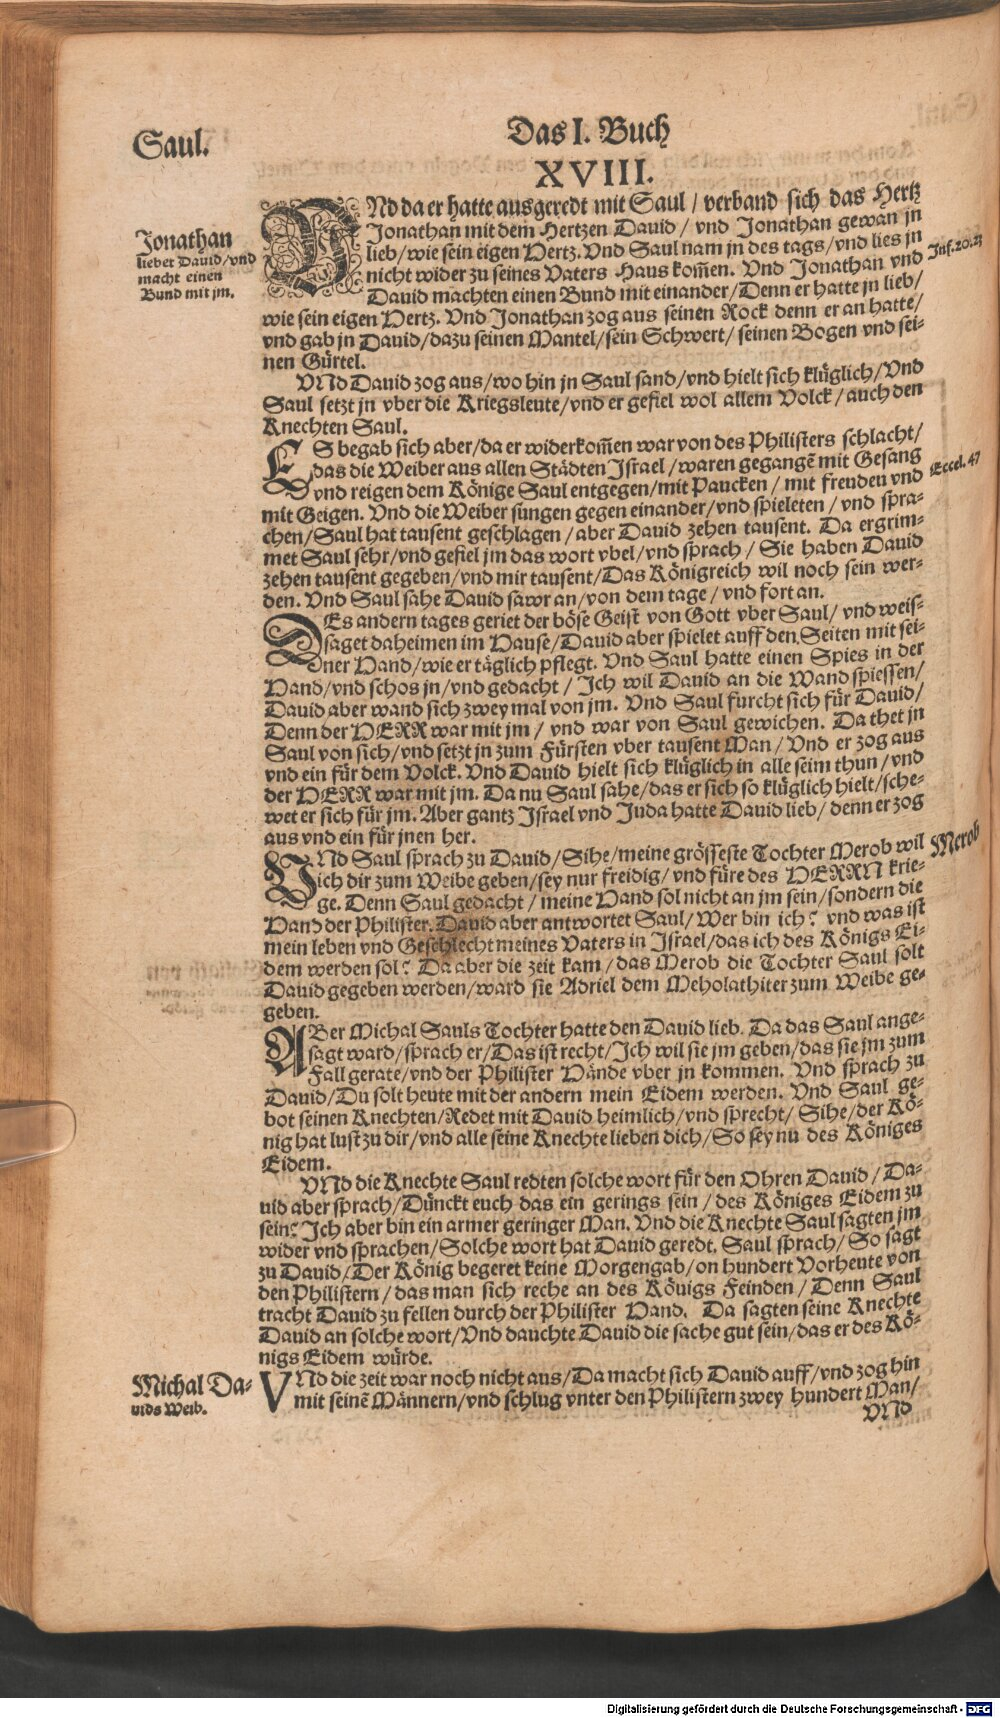 Saul.
Das I. Buch
XVIII.
VNd da er hatte ausgeredt mit Saul / verband sich das Hertz
Jonathan mit dem Hertzen Dauid / vnd Jonathan gewan jn
lieb / wie sein eigen Hertz. Vnd Saul nam jn des tags / vnd lies jn
nicht wider zu seines Vaters Haus kom̃en. Vnd Jonathan vnd
Dauid machten einen Bund mit einander / Denn er hatte jn lieb /
wie sein eigen Hertz. Vnd Jonathan zog aus seinen Rock denn er an hatte /
vnd gab jn Dauid / dazu seinen Mantel / sein Schwert / seinen Bogen vnd sei-
nen Gürtel.
Jonathan
liebet Dauid / vnd
macht einen
Bund mit jm.
Inf. 20. 23
VNd Dauid zog aus / wo hin jn Saul sand / vnd hielt sich klüglich / Vnd
Saul setzt jn vber die Kriegsleute / vnd er gefiel wol allem Volck / auch den
Knechten Saul.
ES begab sich aber / da er widerkom̃en war von des Philisters schlacht /
das die Weiber aus allen Städten Israel / waren gegangẽ mit Gesang
vnd reigen dem Könige Saul entgegen / mit Paucken / mit freuden vnd
mit Geigen. Vnd die Weiber sungen gegen einander / vnd spieleten / vnd spra-
chen / Saul hat tausent geschlagen / aber Dauid zehen tausent. Da ergrim-
met Saul sehr / vnd gefiel jm das wort vbel / vnd sprach / Sie haben Dauid
zehen tausent gegeben / vnd mir tausent / Das Königreich wil noch sein wer-
den. Vnd Saul sahe Dauid sawr an / von dem tage / vnd fort an.
Eccel. 47
DEs andern tages geriet der böse Geist von Gott vber Saul / vnd weis-
saget daheimen im Hause / Dauid aber spielet auff den Seiten mit sei-
ner Hand / wie er täglich pflegt. Vnd Saul hatte einen Spies in der
Hand / vnd schos jn / vnd gedacht / Ich wil Dauid an die Wand spiessen /
Dauid aber wand sich zwey mal von jm. Vnd Saul furcht sich für Dauid /
Denn der HERR war mit jm / vnd war von Saul gewichen. Da thet jn
Saul von sich / vnd setzt jn zum Fürsten vber tausent Man / Vnd er zog aus
vnd ein für dem Volck. Vnd Dauid hielt sich klüglich in alle seim thun / vnd
der HERR war mit jm. Da nu Saul sahe / das er sich so klüglich hielt / sche-
wet er sich für jm. Aber gantz Israel vnd Juda hatte Dauid lieb / denn er zog
aus vnd ein für jnen her.
VNd Saul sprach zu Dauid / Sihe / meine grösseste Tochter Merob wil
ich dir zum Weibe geben / sey nur freidig / vnd füre des HERRN krie-
ge. Denn Saul gedacht / meine Hand sol nicht an jm sein / sondern die
Hand der Philister. Dauid aber antwortet Saul / Wer bin ich? vnd was ist
mein leben vnd Geschlecht meines Vaters in Israel / das ich des Königs Ei-
dem werden sol? Da aber die zeit kam / das Merob die Tochter Saul solt
Dauid gegeben werden / ward sie Adriel dem Meholathiter zum Weibe ge-
geben.
Merob
ABer Michal Sauls Tochter hatte den Dauid lieb. Da das Saul ange-
sagt ward / sprach er / Das ist recht / Ich wil sie jm geben / das sie jm zum
Fall gerate / vnd der Philister Hände vber jn kommen. Vnd sprach zu
Dauid / Du solt heute mit der andern mein Eidem werden. Vnd Saul ge-
bot seinen Knechten / Redet mit Dauid heimlich / vnd sprecht / Sihe / der Kö-
nig hat lust zu dir / vnd alle seine Knechte lieben dich / So sey nu des Königes
Eidem.
VNd die Knechte Saul redten solche wort für den Ohren Dauid / Da-
uid aber sprach / Dünckt euch das ein gerings sein / des Königes Eidem zu
sein? Ich aber bin ein armer geringer Man. Vnd die Knechte Saul sagten jm
wider vnd sprachen / Solche wort hat Dauid geredt. Saul sprach / So sagt
zu Dauid / Der König begeret keine Morgengab / on hundert Vorheute von
den Philistern / das man sich reche an des Königs Feinden / Denn Saul
tracht Dauid zu fellen durch der Philister Hand. Da sagten seine Knechte
Dauid an solche wort / Vnd dauchte Dauid die sache gut sein / das er des Kö-
nigs Eidem würde.
Michal Da-
uids Weib.
VNd die zeit war noch nicht aus / Da macht sich Dauid auff / vnd zog hin
mit seinẽ Männern / vnd schlug vnter den Philistern zwey hundert Man /
VNd
Digitalisierung gefördert durch die Deutsche Forschungsgemeinschaft - DFG